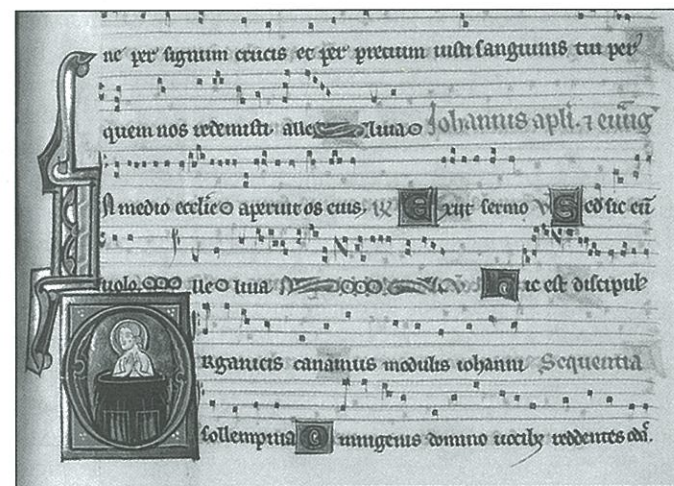 ne per signum crucis et per precium iusti sanguinis tui per
quem nos redemisti. alle luia Iohannis apłi. ⁊ euãg
In medio ecclie aperuit os eius. Exiit sermo Sed sic eũ
uolo. lle luia Hic est discipul
Organicis canamus modulis iohanni Sequentia
sollempnia Omnigenis domino uocibʒ reddentes